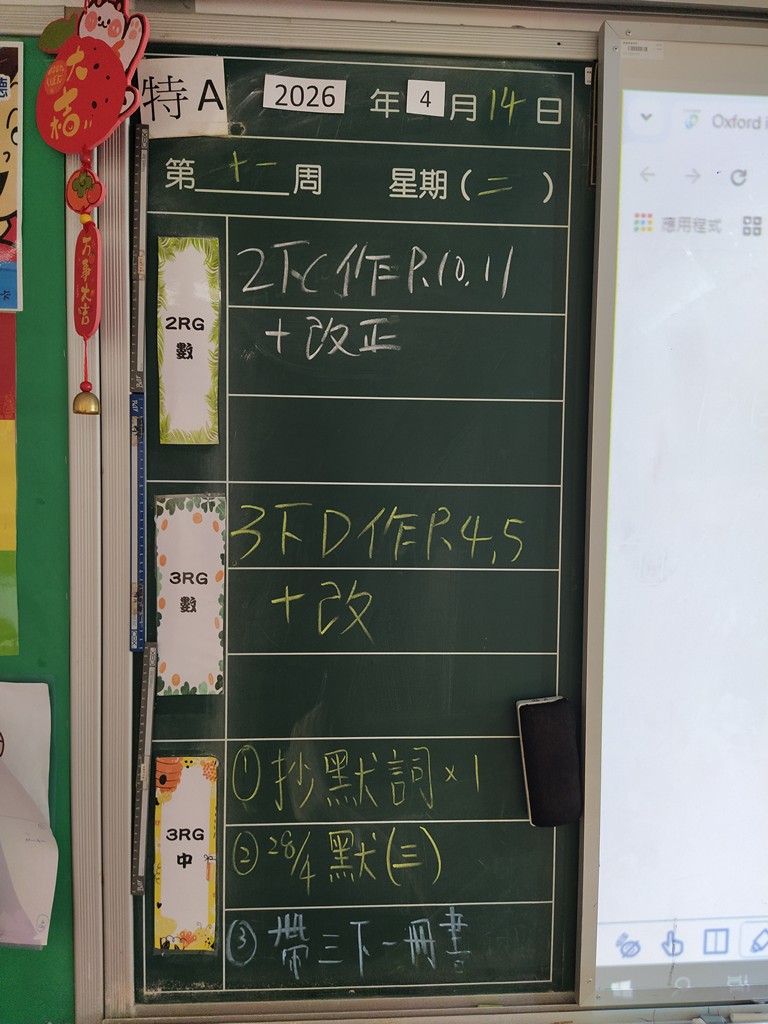 大吉
萬事大吉
特A
2026 年 4 月 14 日
第 十一 周 星期 (二)
2RG
數
2下C作P.10.11
+改正
3RG
數
3下D作P.4,5
+改
3RG
中
①抄默詞×1
②28/4默(三)
③帶三下一冊書
Oxford i
應用程式